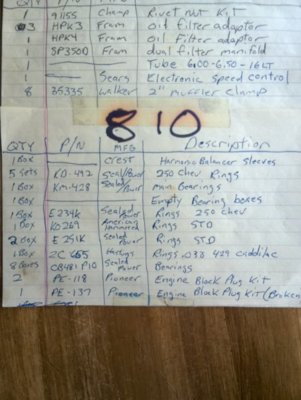 QTY P/N MFG
1 91155 Champ Rivet Nut Kit
3 HPK3 Fram Oil filter adaptor
1 HPK4 Fram Oil filter adaptor
1 SP350D Fram dual filter manifold
1 Tube 6.00-6.50-16LT
1 Sears Electronic Speed control
8 35335 Walker 2" Muffler Clamp
810
QTY P/N MFG Description
1 Box Crest Harmonic Balancer Sleeves
5 Sets KD-492 Sealed/Power 250 Chev Rings
1 Box KM-428 Sealed/Power Main Bearings
1 Box Empty Bearing boxes
1 Box E234K Sealed/Power Rings 250 Chev
1 Box KD269 American Hammered Rings STD
2 Box E251K Sealed Power Rings STD
1 Box 2C 465 Hastings Rings 429 cadillac
8 Boxes CB481 P10 Sealed Power Bearings
2 PE-118 Pioneer Engine Block Plug Kit
1 PE-137 Pioneer Engine Block Plug Kit (Broken